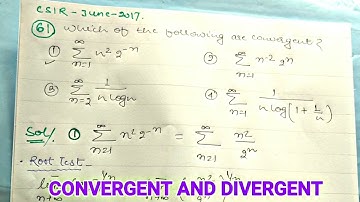 CSIR - June - 2017.
61) Which of the following are convergent?
① ∑_{n=1}^{∞} n² 2^{-n} ② ∑_{n=1}^{∞} n^{-2} 2^n
③ ∑_{n=2}^{∞} 1/(n log n) ④ ∑_{n=1}^{∞} 1/(n log(1+1/n))
Sol/. ① ∑_{n=1}^{∞} n² 2^{-n} = ∑_{n=1}^{∞} n²/2^n
Root Test
CONVERGENT AND DIVERGENT